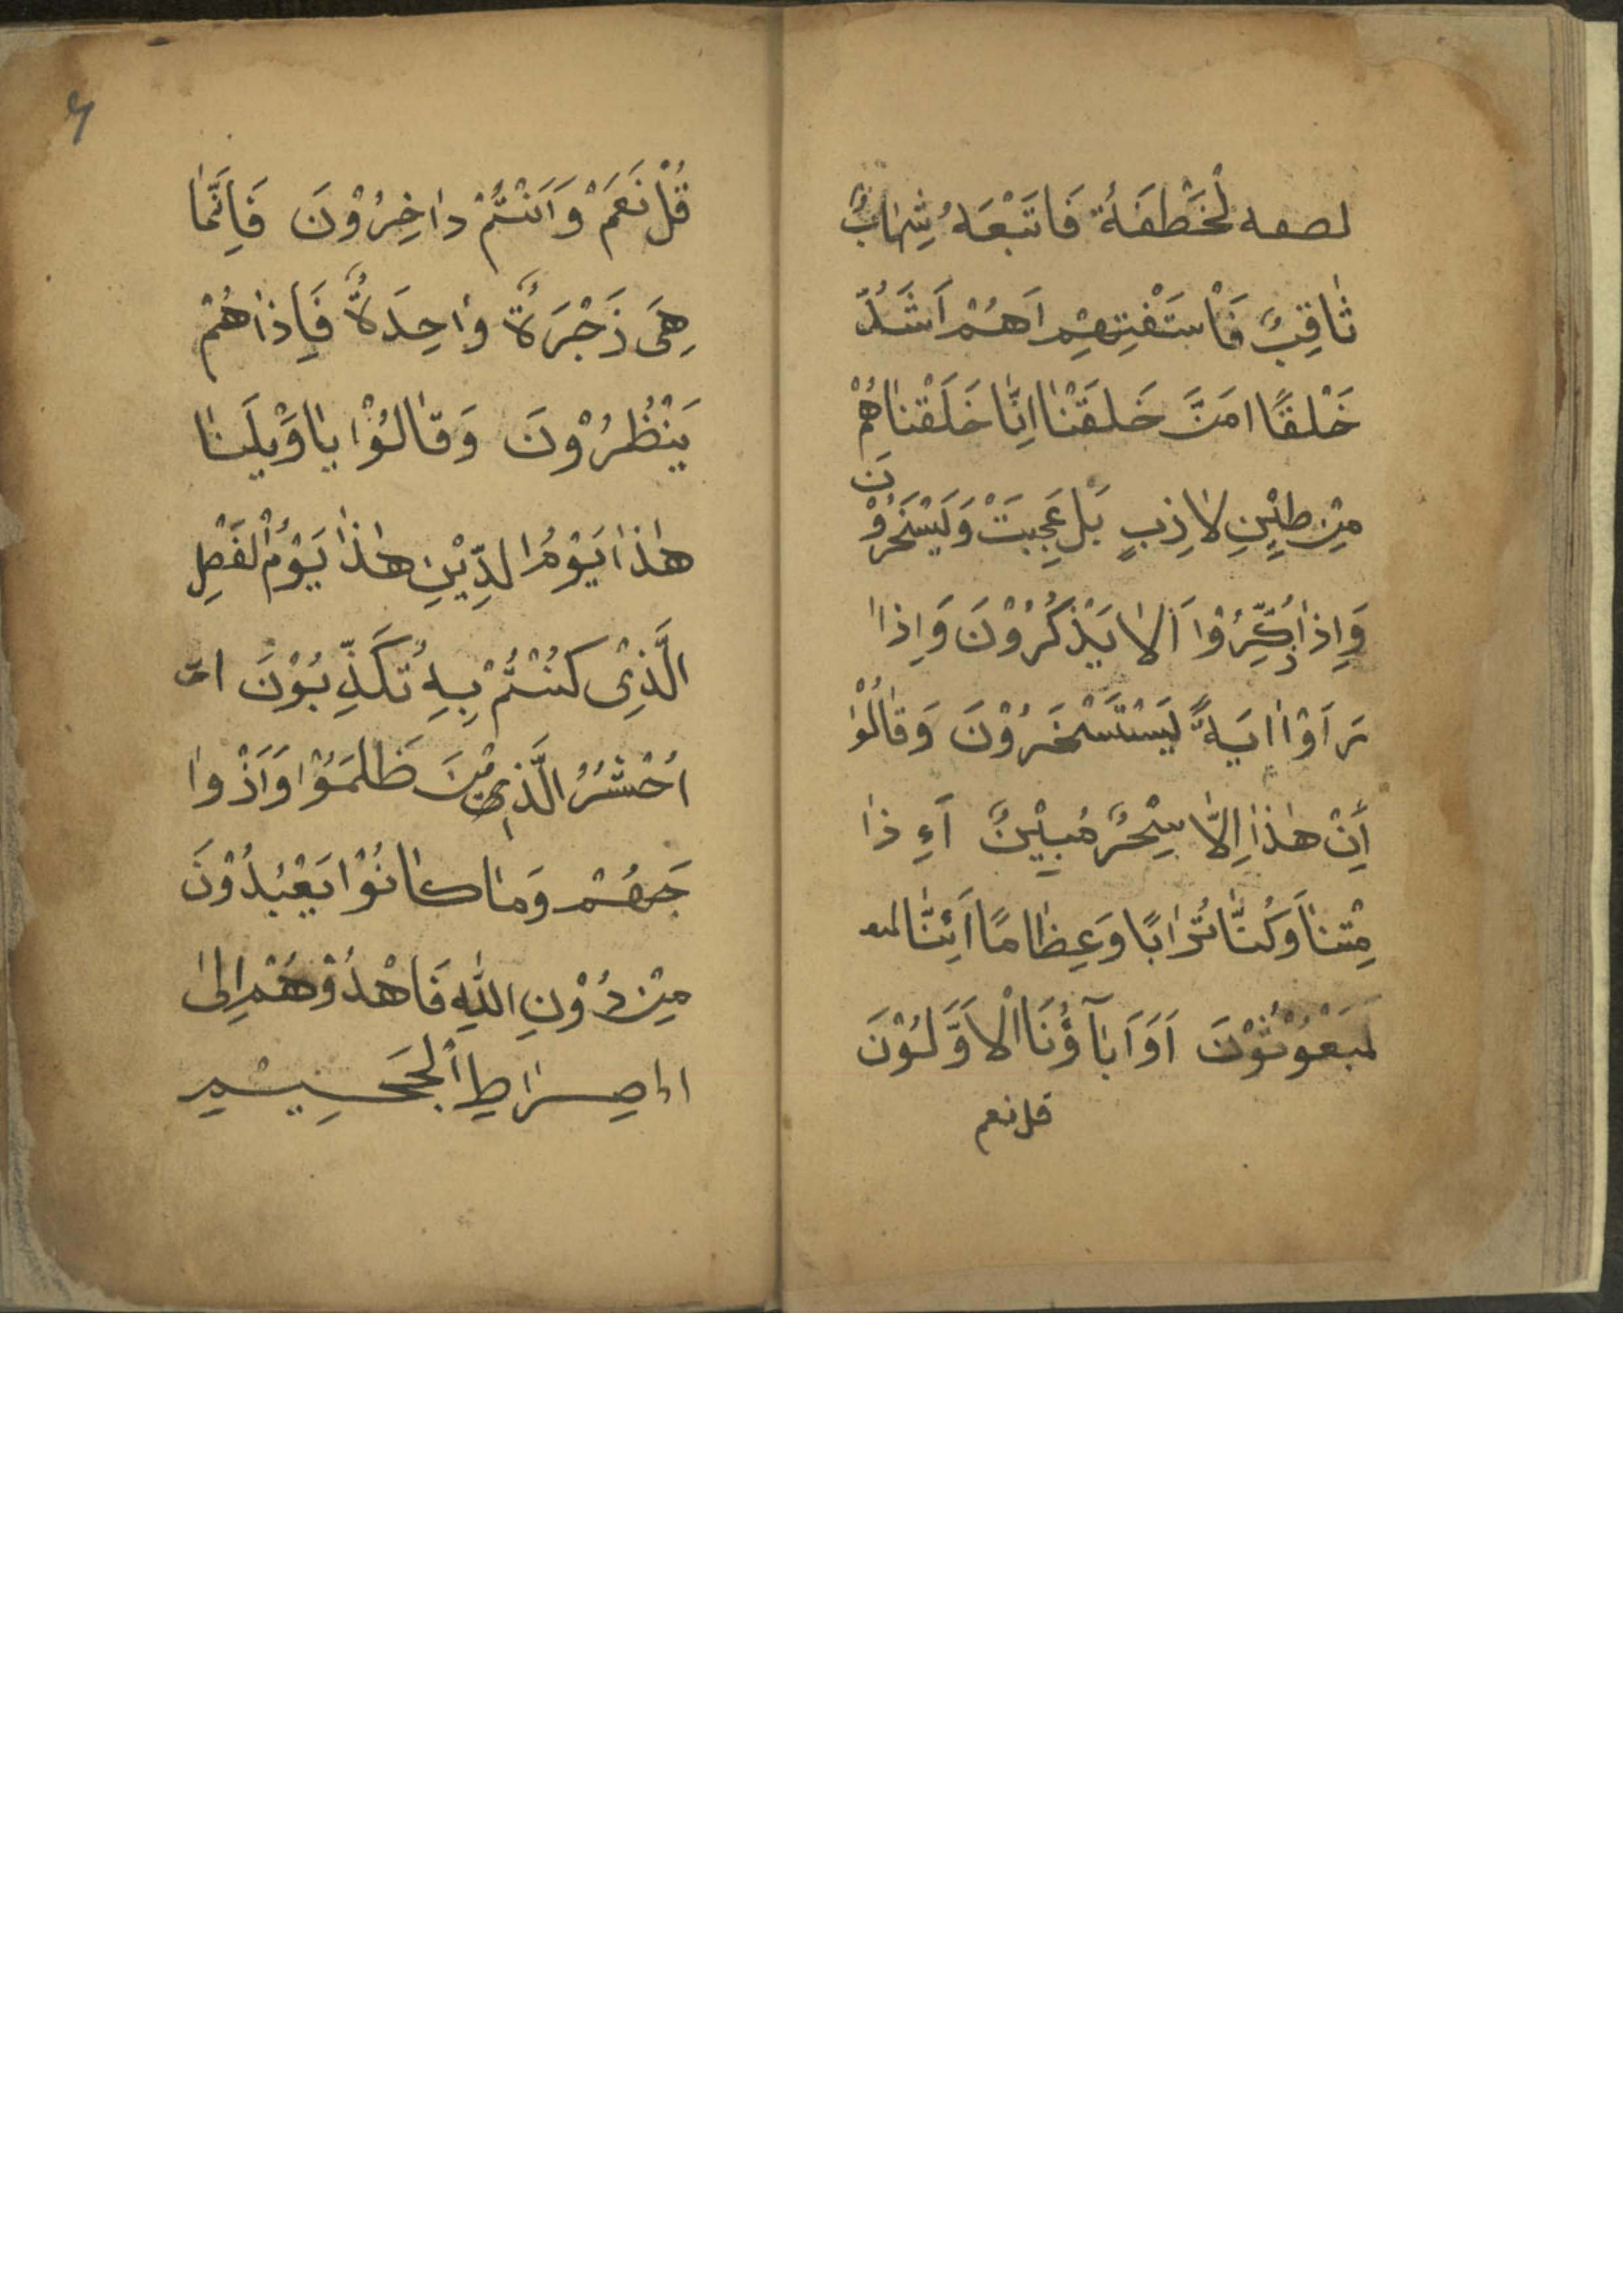 لْخَطْفَةُ فَاتَبْعَهُ شِهَابٌ
ثَاقِبٌ فَاسْتَفْتِهِمْ اَهُمْ اَشَدُّ
خَلْقًا امَنَّ خَلَقْنَا اِنَّا خَلَقْنَاهُمْ
مِنْ طِيْنٍ لاٰذِبٍ بَلْ عَجِبَتْ وَيَسْخَرُوْنَ
وَاِذَا ذُكِّرُوْا اَلاٰ يَذْكُرُوْنَ وَاِذَا
رَاَوْا اٰيَةً يَسْتَسْخَرُوْنَ وَقَالُوْا
اِنْ هٰذَا اِلاَّ سِحْرٌ مُبِيْنٌ آءِذَا
مِتْنَا وَكُنَّا تُرَابًا وَعِظَامًا اَئِنَّا لمبعو
لَمَبْعُوْثُوْنَ اَوَ اَبَآؤُنَا الْاَوَّلُوْنَ
قل نعم
قُلْ نَعَمْ وَاَنْتُمْ دَاخِرُوْنَ فَاِنَّمَا
هِىَ ذَجْرَةٌ وَاحِدَةٌ فَاِذَاهُمْ
يَنْظُرُوْنَ وَقَالُوْا يَاوَيْلَنَا
هٰذَا يَوْمُ الدِّيْنِ هٰذَا يَوْمُ الْفَصْلِ
الَّذِىْ كُنْتُمْ بِهِ تُكَذِّبُوْنَ
اُحْشُرُ الَّذِيْنَ ظَلَمَوْا وَاَذْوا
جَهُمْ وَمَا كَانُوْا يَعْبُدُوْنَ
مِنْ دُوْنِ اللّٰهِ فَاهْدُوْهُمْ اِلىٰ
صِرَاطِ الْجَحِيْمِ